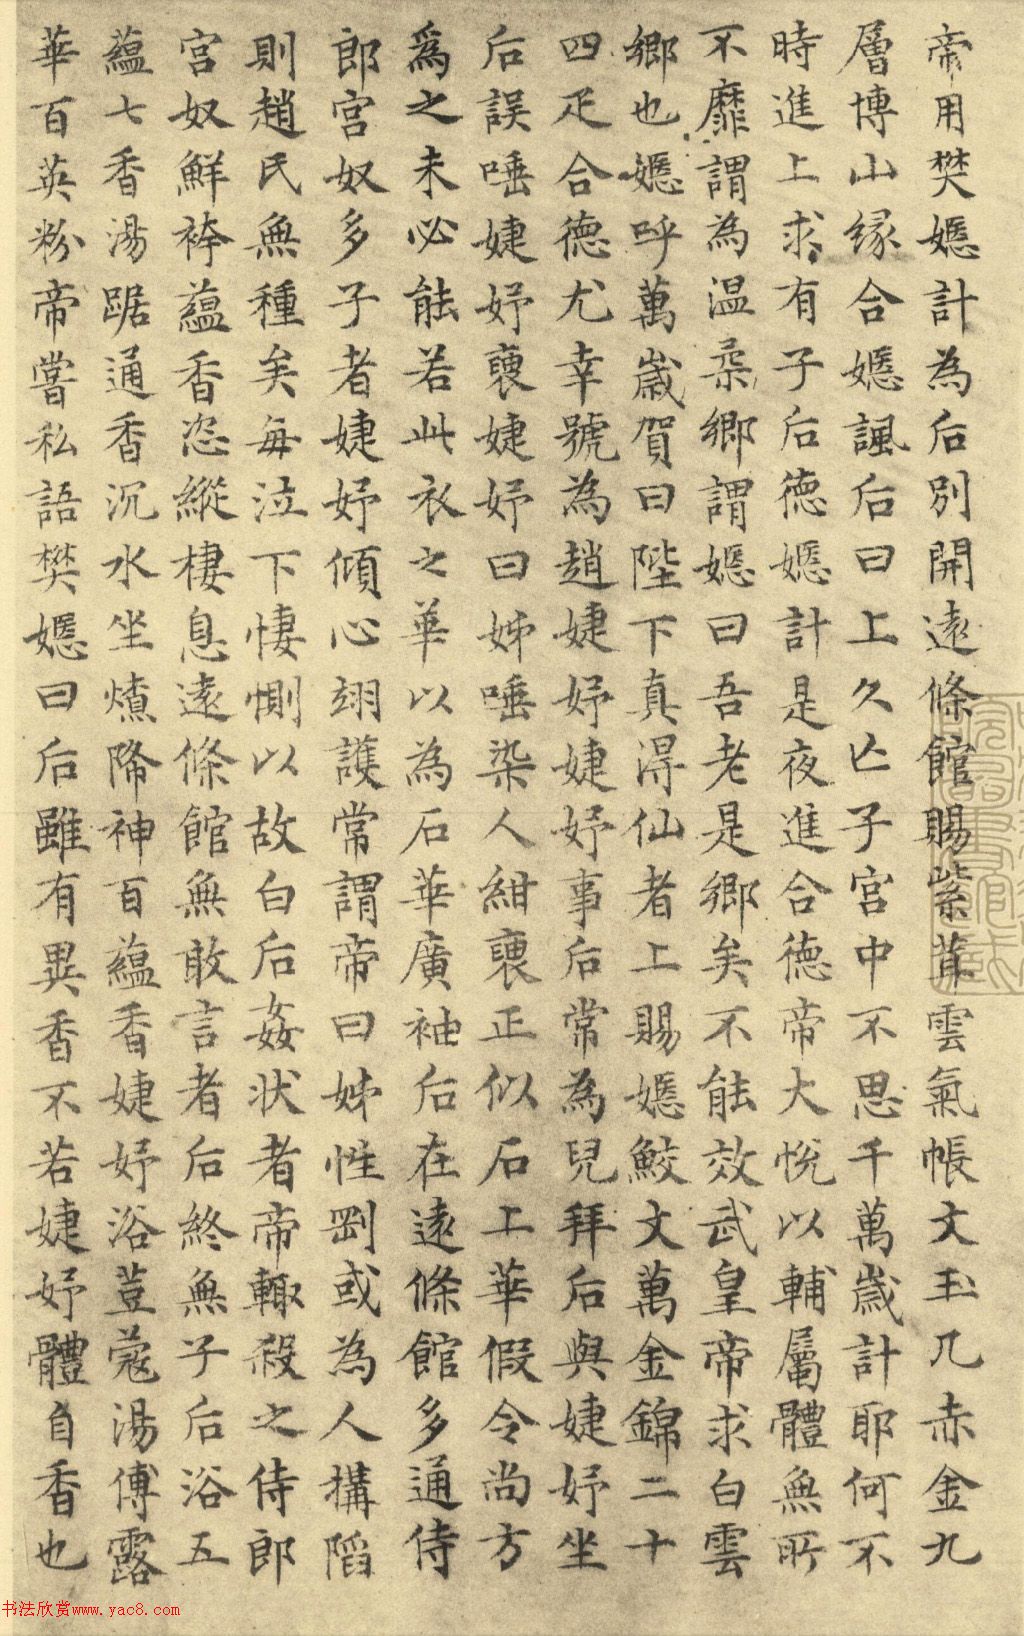 帝用樊嫕計為后別開遠條館賜紫茸雲氣帳文玉几赤金九
層博山緣合嫕諷后曰上久亡子宮中不思千萬歲計耶何不
時進上求有子后德嫕計是夜進合德帝大悅以輔屬體無所
不靡謂為温柔鄉謂嫕曰吾老是鄉矣不能效武皇帝求白雲
鄉也嫕呼萬歲賀曰陛下真得仙者上賜嫕鮫文萬金錦二十
四疋合德尤幸號為趙婕妤婕妤事后常為兒拜后與婕妤坐
后誤唾婕妤褏婕妤曰姊唾染人紺褏正似石上華假令尚方
為之未必能若此衣之華以為石華廣袖后在遠條館多通侍
郎宮奴多子者婕妤傾心翊護常謂帝曰姊性剛或為人構陷
則趙氏無種矣每泣下悽惻以故白后姦狀者帝輒殺之侍郎
宮奴鮮袴蘊香恣縱棲息遠條館無敢言者后終無子后浴五
蘊七香湯踞通香沉水坐燎降神百蘊香婕妤浴荳蔻湯傅露
華百英粉帝嘗私語樊嫕曰后雖有異香不若婕妤體自香也
书法欣赏www.yac8.com